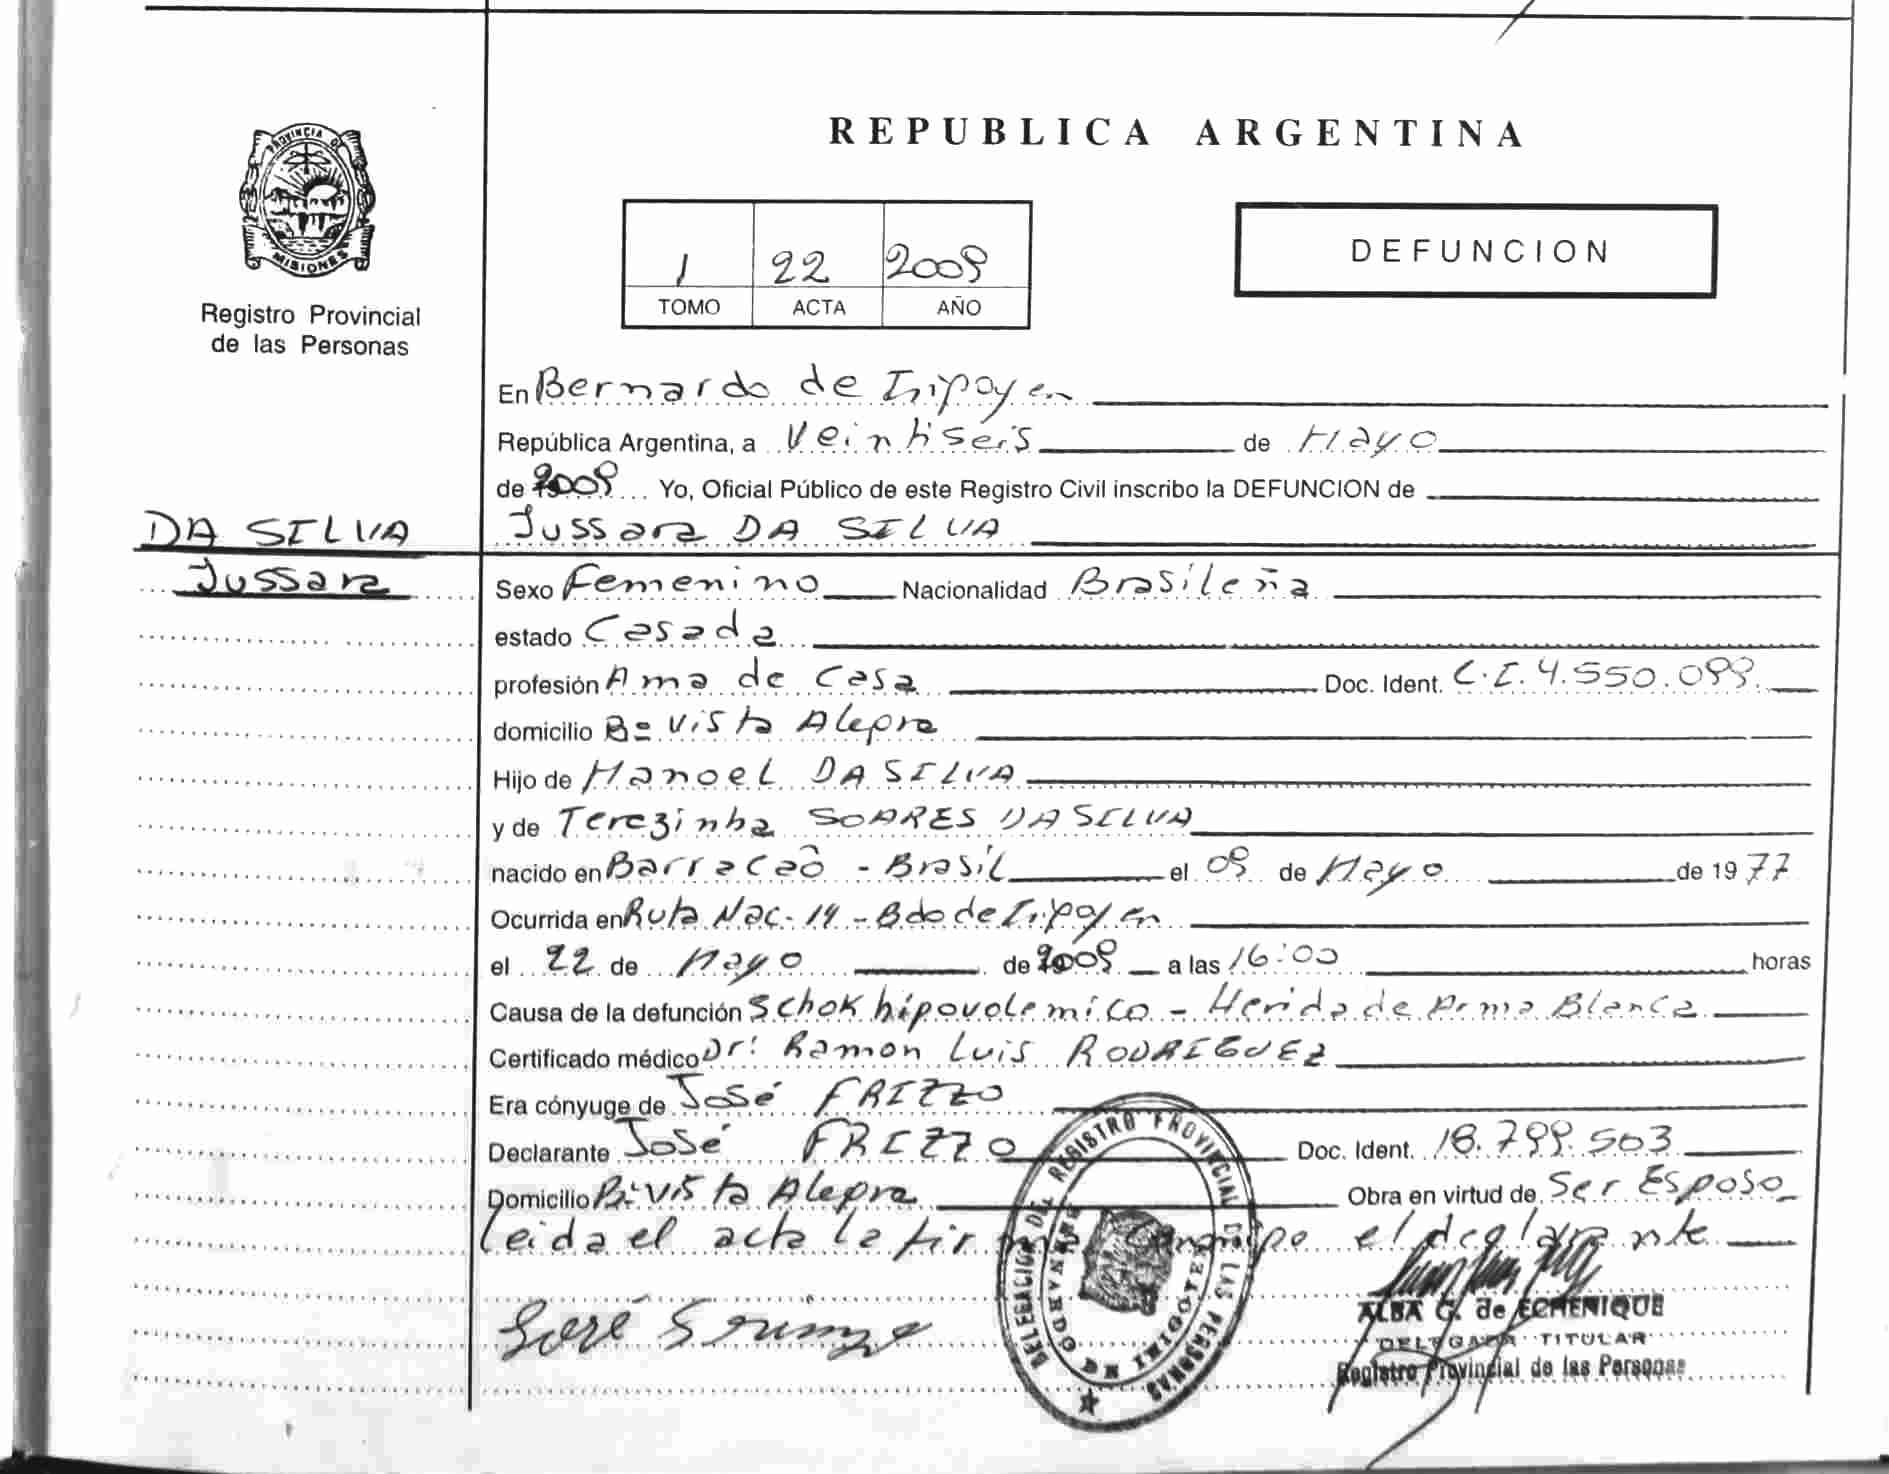 PROVINCIA DE
MISIONES
Registro Provincial
de las Personas
REPUBLICA ARGENTINA
DEFUNCION
1 22 2009
TOMO ACTA AÑO
En Bernardo de Iripoyen
República Argentina, a Veintiseis de Mayo
de 2009 Yo, Oficial Público de este Registro Civil inscribo la DEFUNCION de
DA SILVA Jussara DA SILVA
Jussara Sexo Femenino Nacionalidad Brasileña
estado Casada
profesión Ama de Casa Doc. Ident. C.I. 4.550.099.
domicilio Bº Vista Alepre
Hijo de Manoel DA SILVA
y de Terezinha SOARES DA SILVA
nacido en Barracaô - Brasil el 09 de Mayo de 1977
Ocurrida en Ruta Nac. 14 - Bdo de Iripoyen
el 22 de Mayo de 2009 a las 16:00 horas
Causa de la defunción Schok hipovolemico - Herida de Arma Blanca
Certificado médico Dr: Ramon Luis RODRIGUEZ
Era cónyuge de José FRIZZO
Declarante José FRIZZO Doc. Ident. 18.799.503
Domicilio Bº Vista Alepre Obra en virtud de Ser Esposo
Leida el acta la firma conmipo el declarante
José
ALBA G. de ECHENIQUE
DELEGADA TITULAR
Registro Provincial de las Personas
DELEGACION DEL REGISTRO PROVINCIAL DE LAS PERSONAS